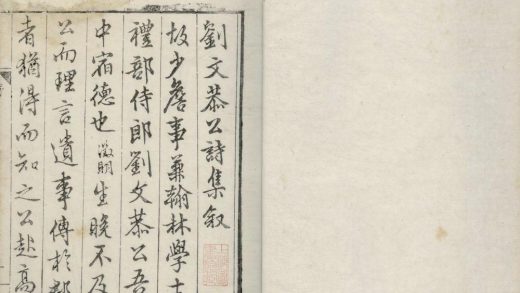 劉文恭公詩集叙
故少詹事兼翰林學士
禮部侍郎劉文恭公吾
中宿德也徵明生晚不及
公而理言遺事傳於
者猶得而知之公赴高